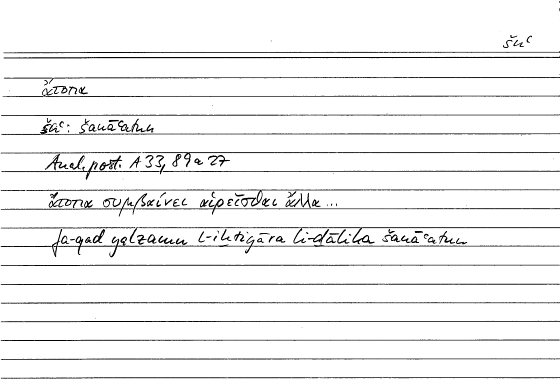 šnʿ
ἄτοπα
šnʿ: šanāʿatun
Anal. post. A 33, 89 a 27
ἄτοπα συμβαίνει αἱρεῖσθαι ἄλλα ...
fa-qad yalzamu l-iḫtiyāra li-ḏālika šanāʿatun